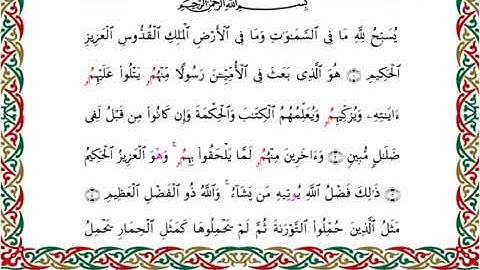 بِسْمِ ٱللَّهِ ٱلرَّحْمَٰنِ ٱلرَّحِيمِ
يُسَبِّحُ لِلَّهِ مَا فِى ٱلسَّمَٰوَٰتِ وَمَا فِى ٱلْأَرْضِ ٱلْمَلِكِ ٱلْقُدُّوسِ ٱلْعَزِيزِ
ٱلْحَكِيمِ ۝ هُوَ ٱلَّذِى بَعَثَ فِى ٱلْأُمِّيِّـۧنَ رَسُولًا مِّنْهُمُۥ يَتْلُوا۟ عَلَيْهِمُۥ
ءَايَٰتِهِۦ وَيُزَكِّيهِمُۥ وَيُعَلِّمُهُمُ ٱلْكِتَٰبَ وَٱلْحِكْمَةَ وَإِن كَانُوا۟ مِن قَبْلُ لَفِى
ضَلَٰلٍ مُّبِينٍ ۝ وَءَاخَرِينَ مِنْهُمُۥ لَمَّا يَلْحَقُوا۟ بِهِمُۥ ۚ وَهْوَ ٱلْعَزِيزُ ٱلْحَكِيمُ
۝ ذَٰلِكَ فَضْلُ ٱللَّهِ يُوتِيهِ مَن يَشَآءُ ۚ وَٱللَّهُ ذُو ٱلْفَضْلِ ٱلْعَظِيمِ ۝
مَثَلُ ٱلَّذِينَ حُمِّلُوا۟ ٱلتَّوْرَىٰةَ ثُمَّ لَمْ يَحْمِلُوهَا كَمَثَلِ ٱلْحِمَارِ يَحْمِلُ